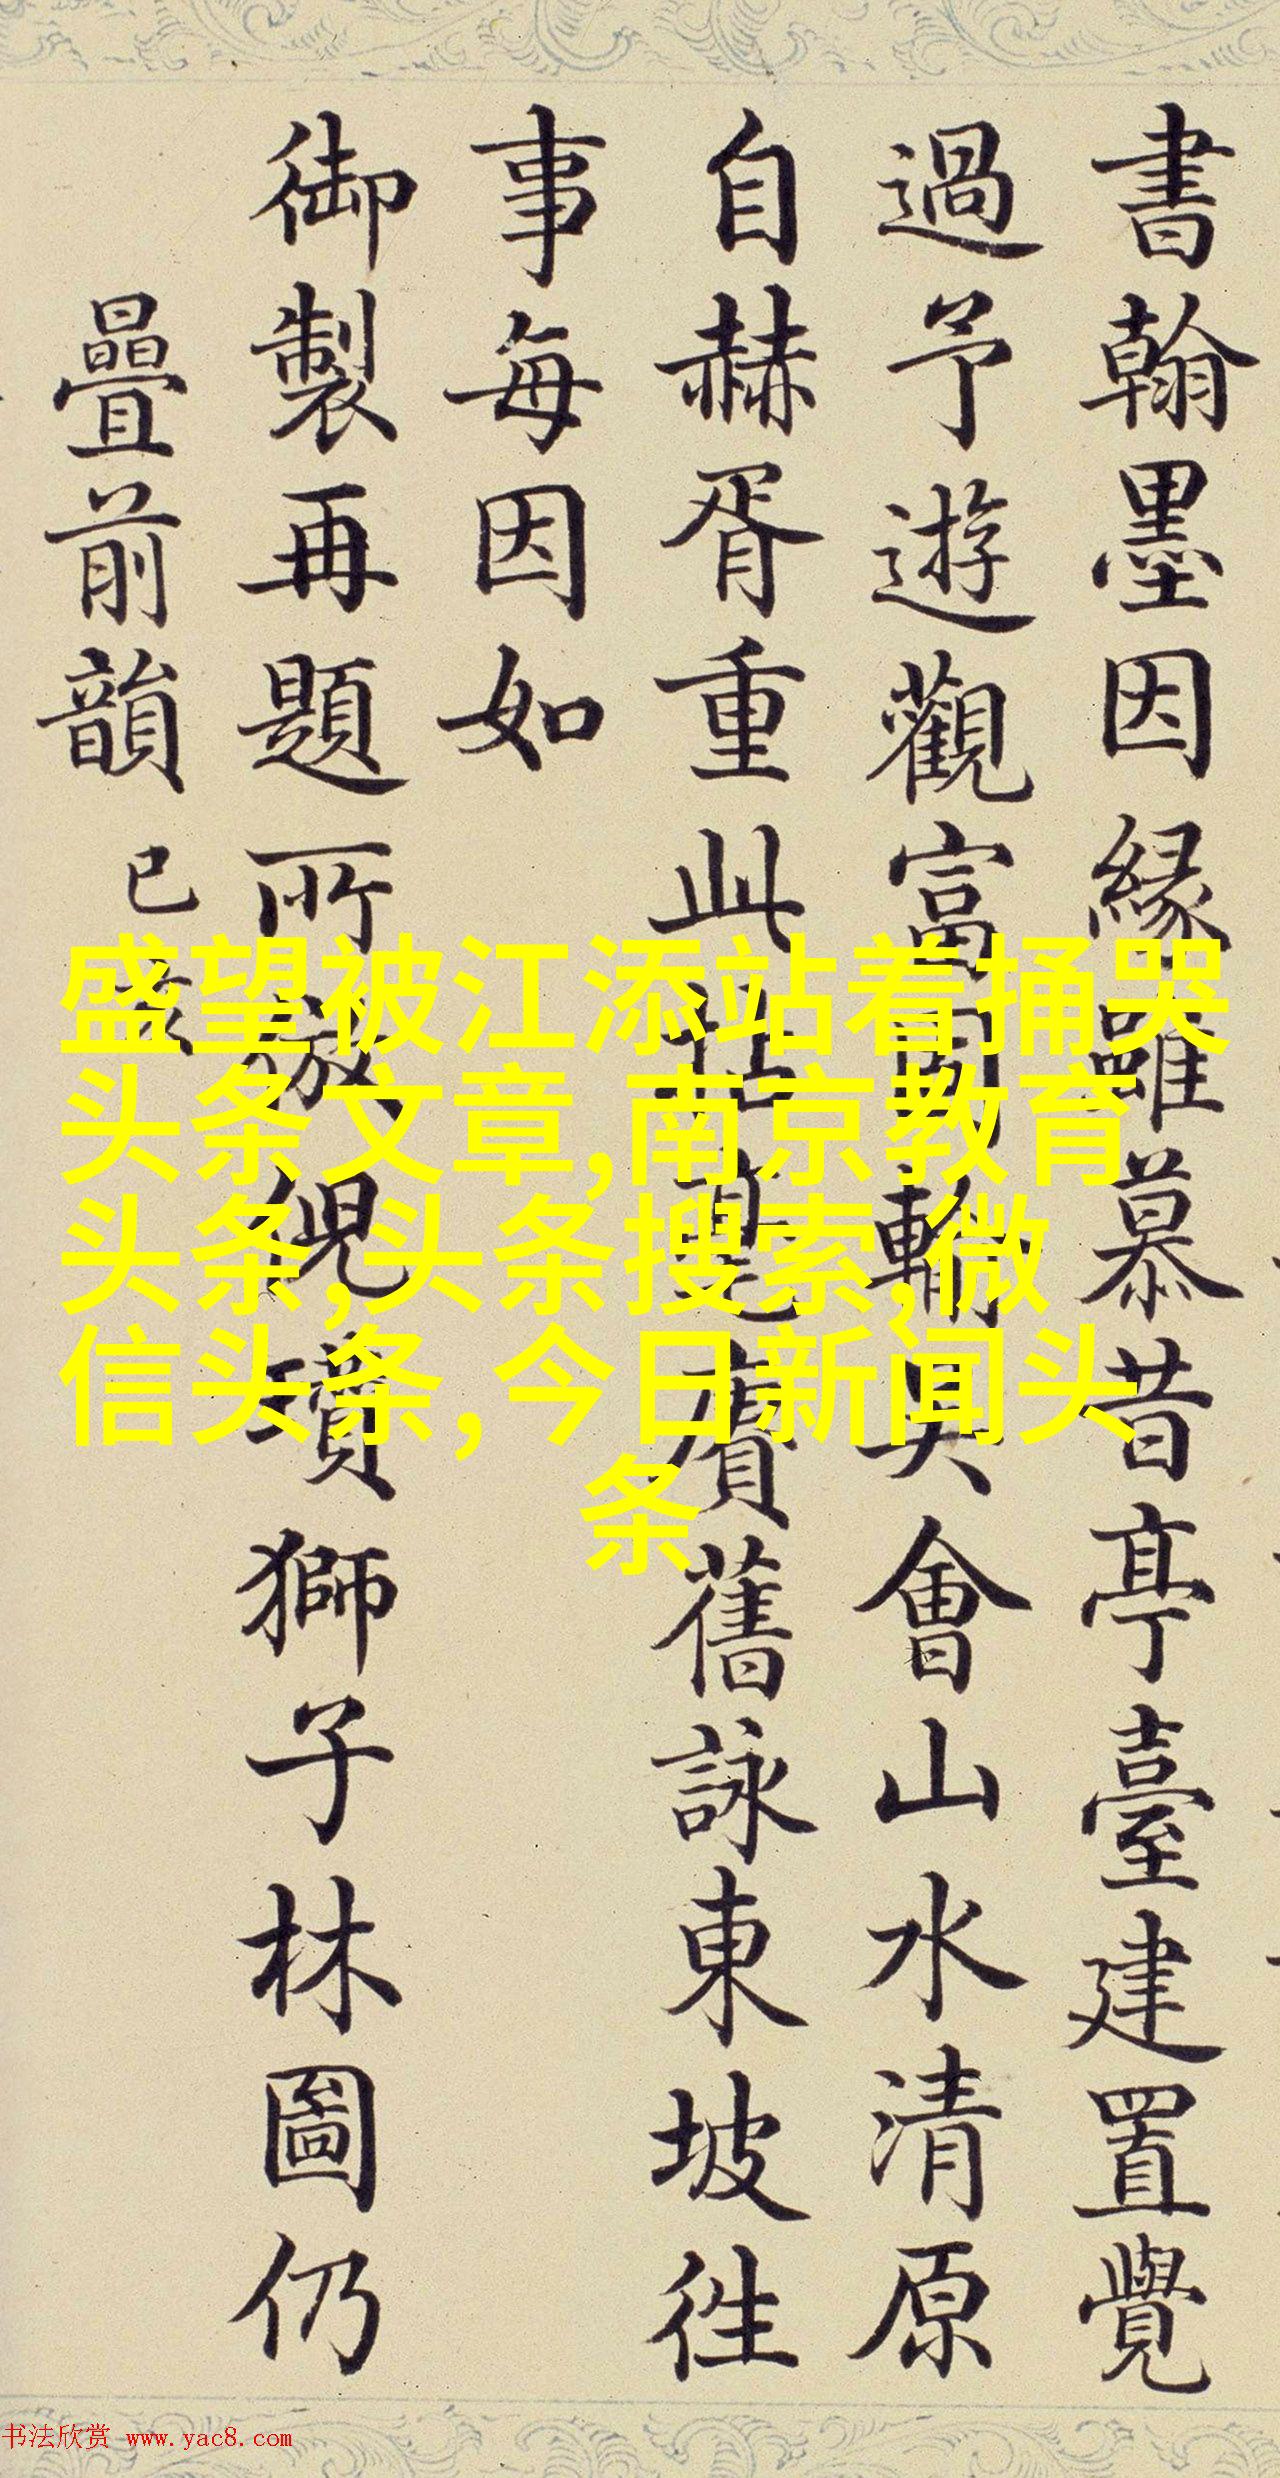 書翰墨因緣雖慕昔亭臺建置覺
過予遊觀富春輸具會山水清原
自赫胥重此性真賡舊詠東坡徃
事每因如
御製再題所倪瓚獅子林圖仍
疊前韻
已
盛望被江添站着捅哭
头条文章,南京教育
头条,头条搜索,微
信头条,今日新闻头
条
书法欣赏 www.yac8.com